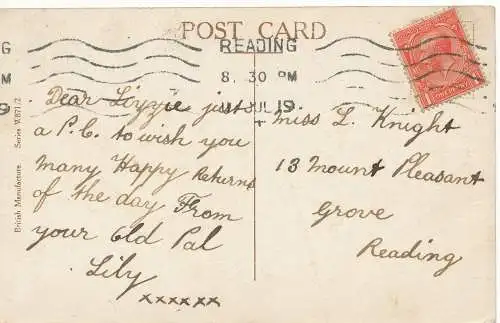 POST CARD
READING
8. 30 PM
JUL 19
British Manufacture
Dear Lizzie just
a P.C. to wish you
many Happy Returns
of the day From
your Old Pal
Lily
xxxxxx
Miss L. Knight
13 Mount Pleasant
Grove
Reading